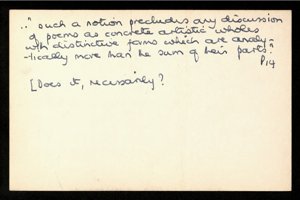 .." such a notion precludes any discussion
of poems as concrete artistic wholes
with distinctive forms which are analy-
-tically more than the sum of their parts."
P14
[Does it, necessarily?